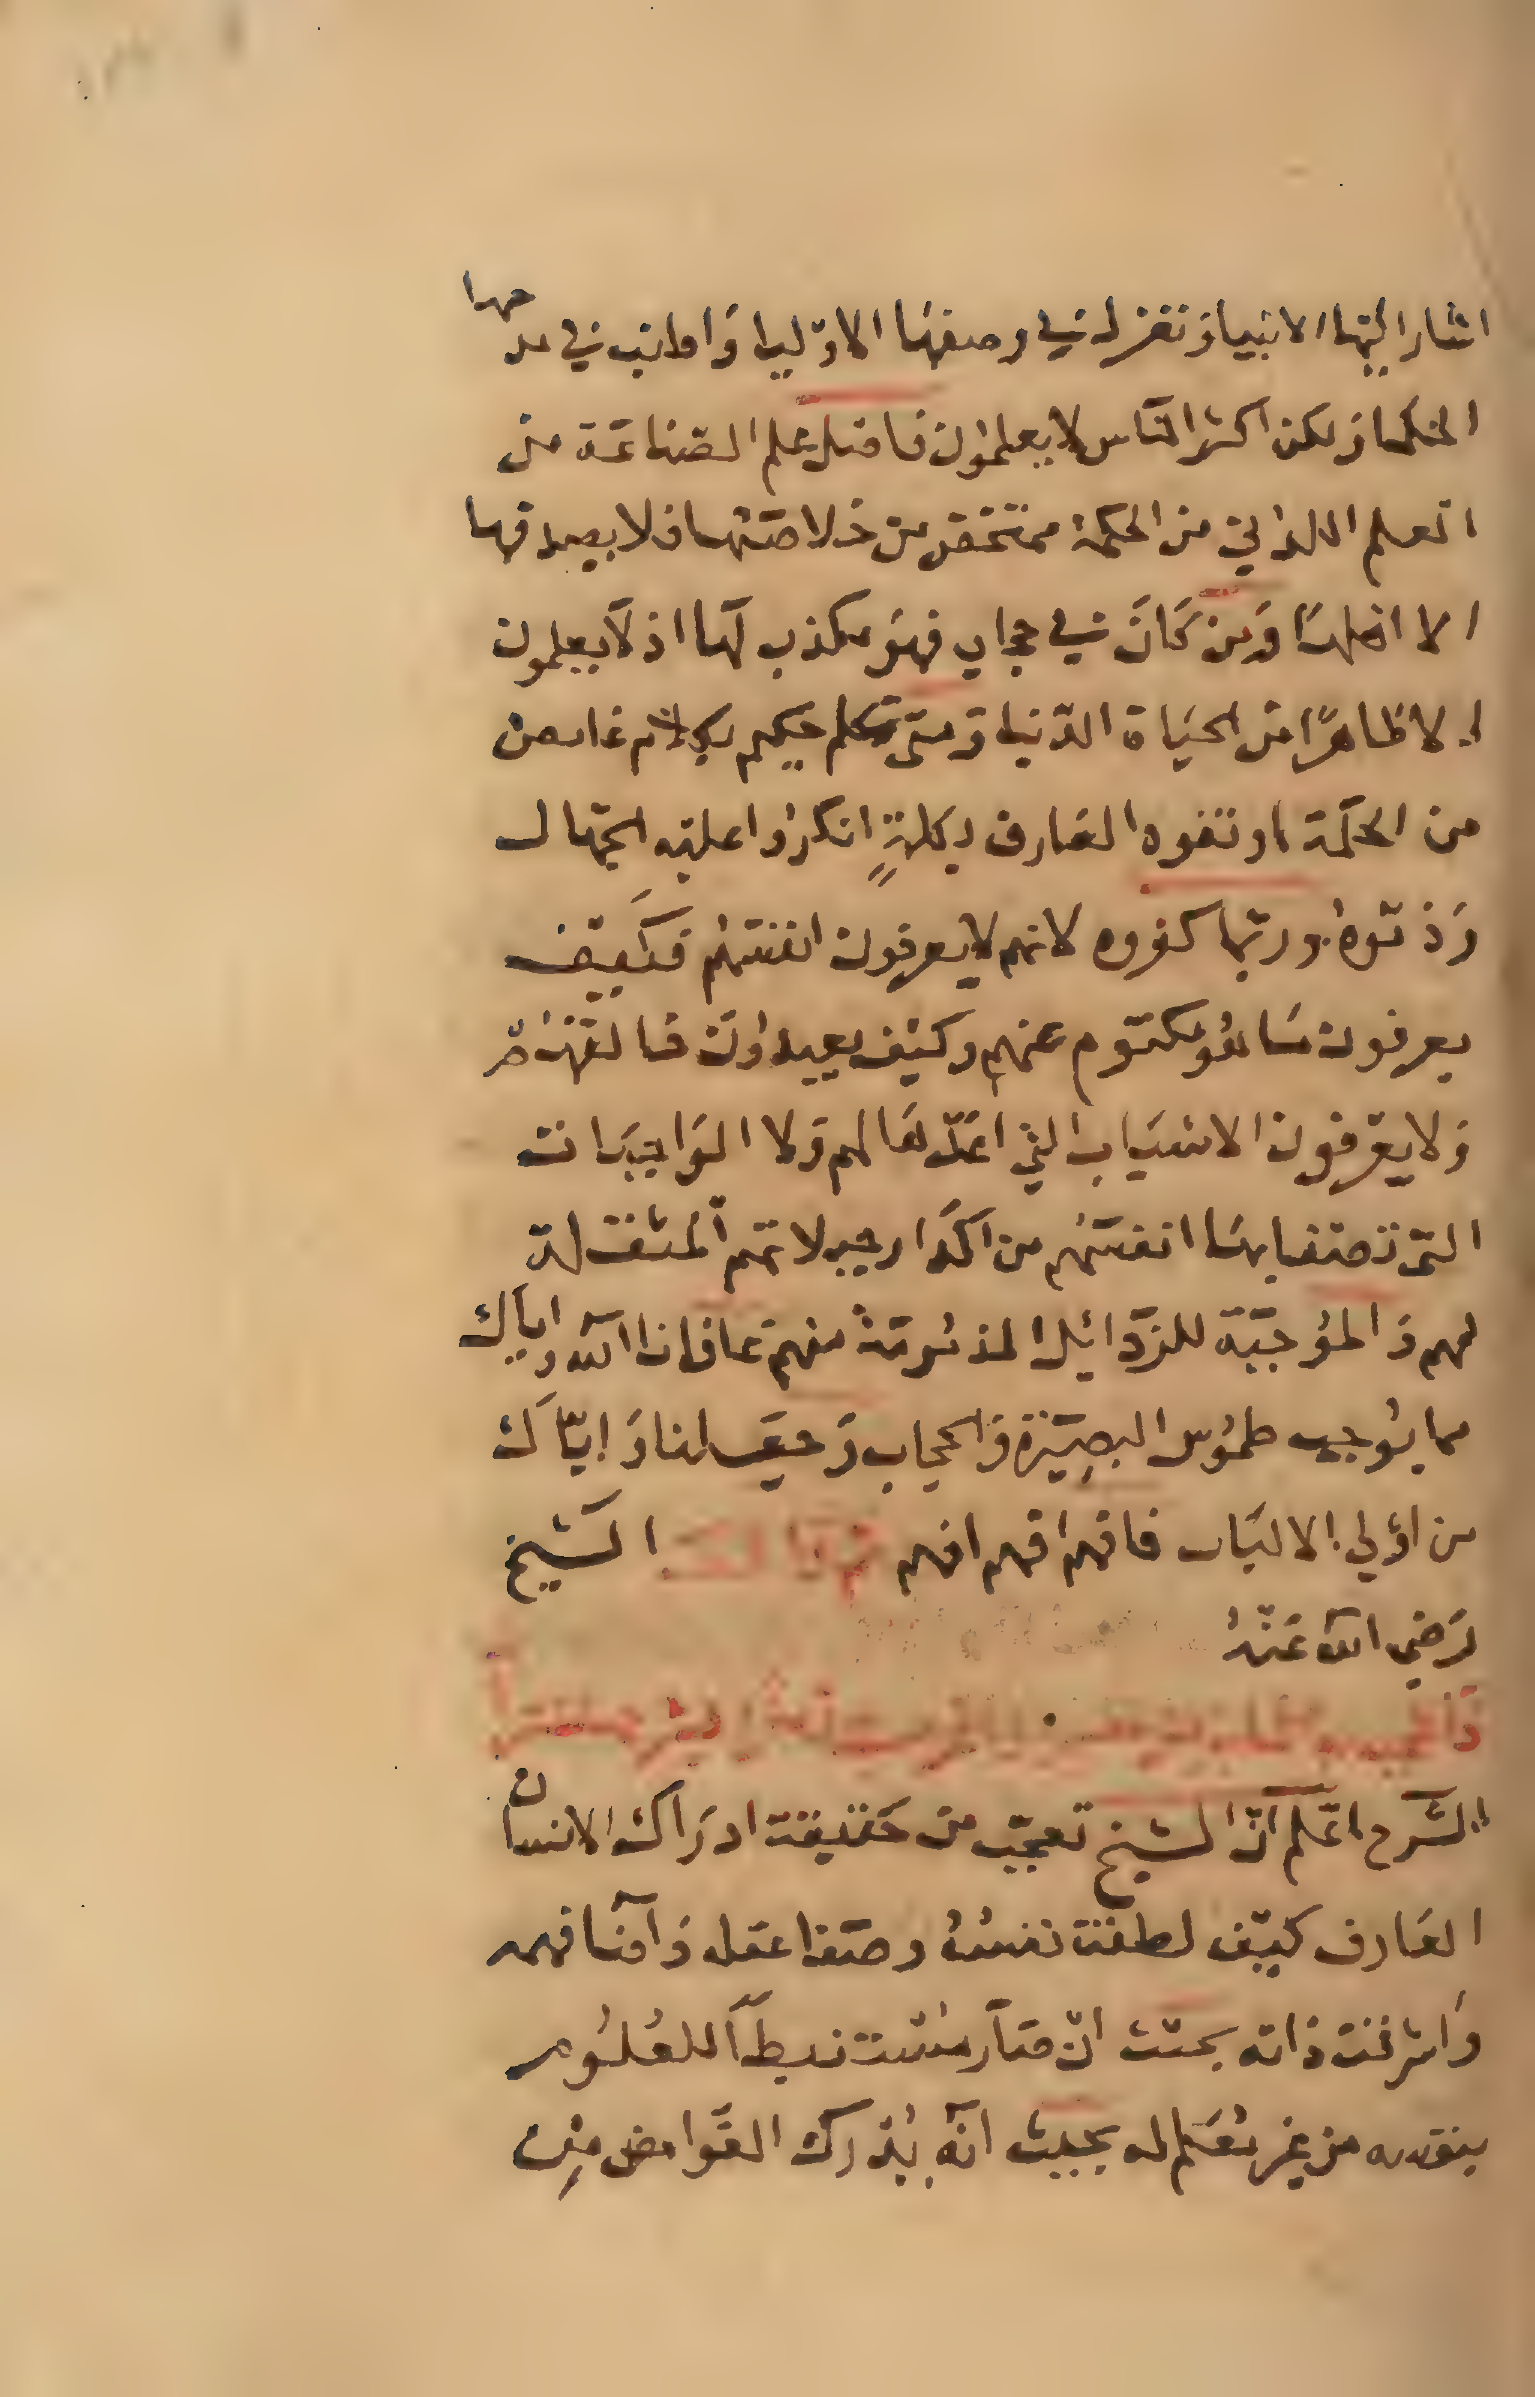 اشار اليها الانبيا وتغزل في وصفها الاوليا واطنب في مدحها
الحكما ولكن اكثر الناس لا يعلمون فاصل علم الصناعة من
العلم اللدني من الحكمة من خلاصتها فلا يصدقها
الا اهلها ومن كان في حجاب فهو مكذب لها اذ لا يعلمون
الا ظاهرًا من الحياة الدنيا ومتى تكلم حكيم بكلام غامض
من الحكمة او تفوه العارف بكلمةٍ انكروا عليه الجهال
وذموه وربما كفروه لانهم لا يعرفون انفسهم فكيف
يعرفون ما هو مكتوم عنهم وكيف يعبدون خالقهم
ولا يعرفون الاسباب التي اعمالهم ولا الواجبات
التي تصفا بها انفسهم من اكدار جبلاتهم المثقلة
لهم والموجبة للرذائل المذمومة منهم عافانا الله واياك
مما يوجب طموس البصيرة والحجاب وجعلنا واياك
من اولي الالباب فافهم افهم افهم قال الشيخ
رضي الله عنه
الشرح اعلم ان الشيخ تعجب من حقيقة ادراك الانسان
العارف كيف لطفت نفسه وصفا عقله وافا فهمه
واشرقت ذاته بحيث ان صار مستنبطا للعلوم
من غير معلم له بحيث انه يدرك الغوامض من